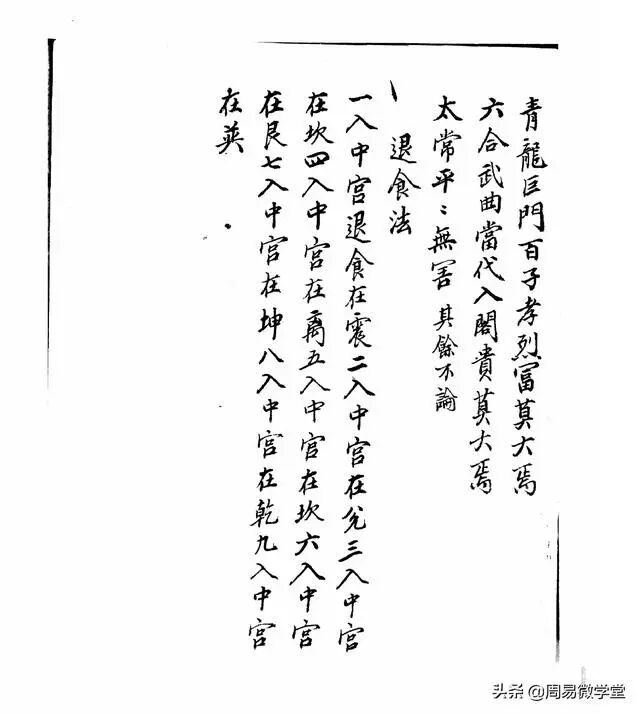 青龍巨門百子孝烈富莫大焉
六合武曲當代入閣貴莫大焉
太常平〻無害 其餘不論
退食法
一入中宮退食在震二入中宮在兌三入中宮
在坎四入中宮在离五入中宮在坎六入中宮
在艮七入中宮在坤八入中宮在乾九入中宮
在英
头条 @周易微学堂